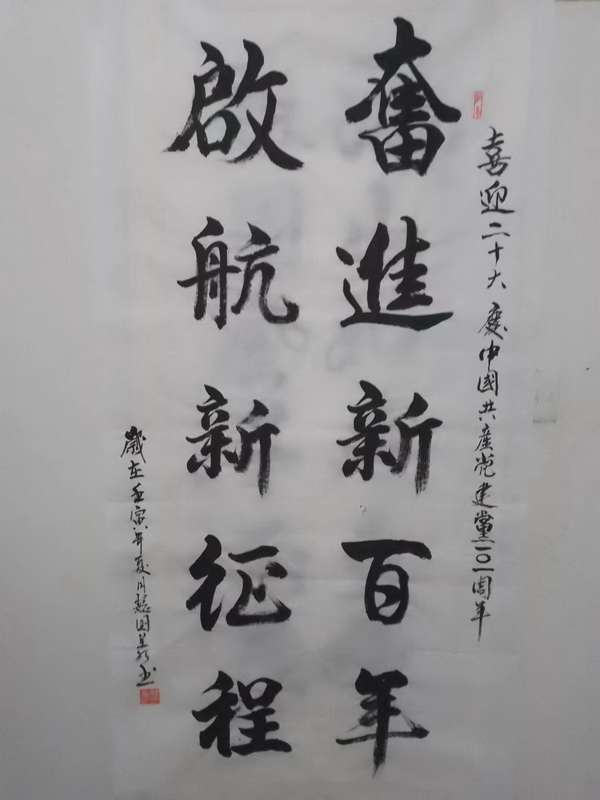 喜迎二十大 慶中國共產党建黨一〇一周年
奮進新百年
啟航新征程
歲在壬寅年夏月